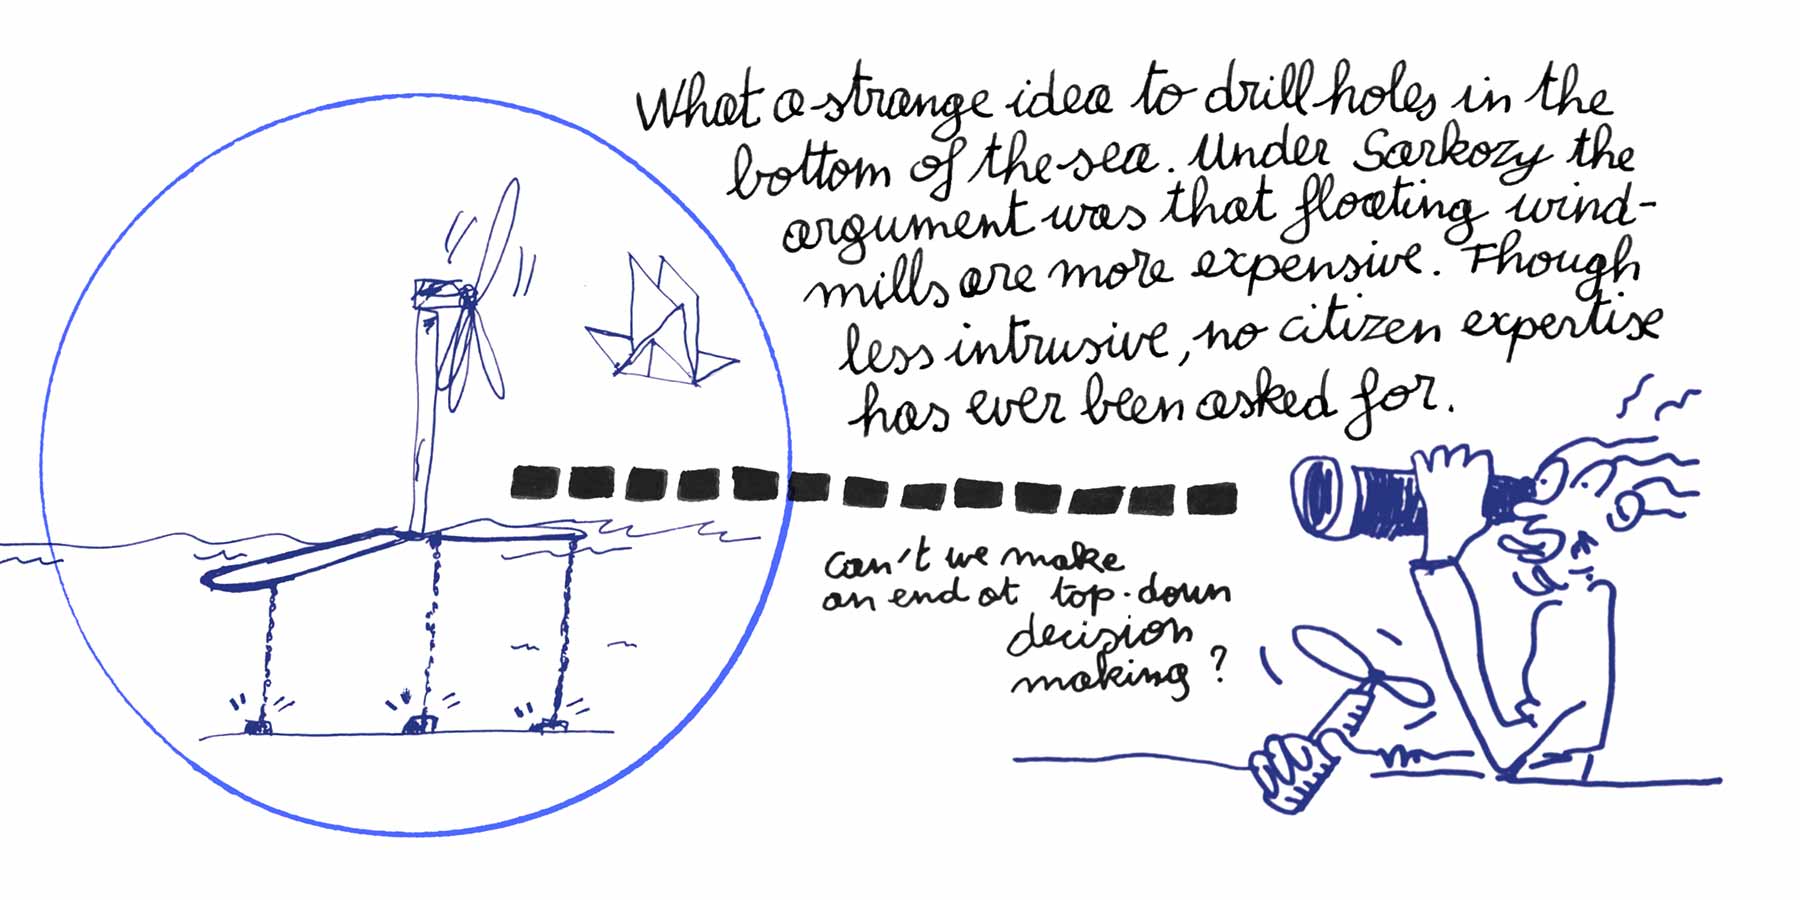 What a strange idea to drill holes in the
bottom of the sea. Under Sarkozy the
argument was that floating wind-
mills are more expensive. Though
less intrusive, no citizen expertise
has ever been asked for.
can't we make
an end at top-down
decision
making?